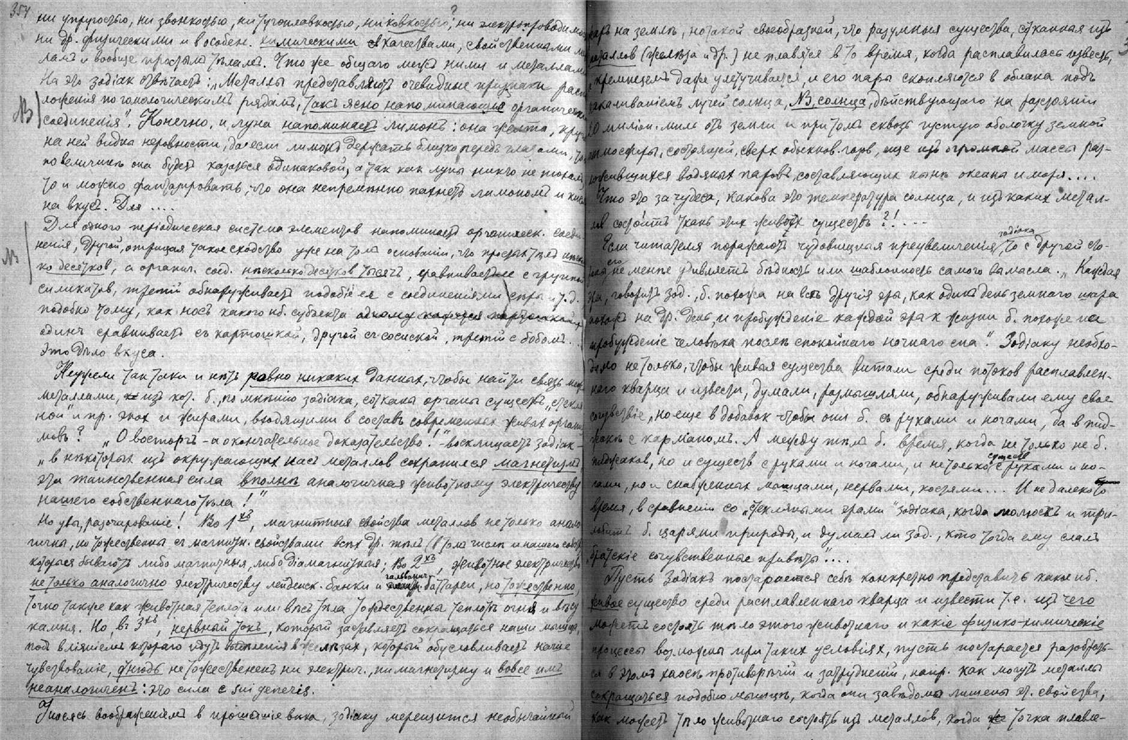 354
ни упругостью, ни звонкостью, ни тугоплавкостью, ни ковкостью? ни электропроводн
ни др. физическими и в особен. химическими качествами, свойственными
лам и вообще простым тѣламъ. Что же общаго между ними и металлами
На это зодіак отвѣчаетъ: „Металлы представляютъ очевидные признаки распо
ложенія по гомологическимъ рядамъ, такъ ясно напоминающіе органическія
соединенія". Конечно. и луна напоминаетъ лимонъ: она желта, кругла
на ней видны неровности, да если лимонъ держать близко передъ глазами, то
по величинѣ она будетъ казаться одинаковой, а так как луны никто не
то и можно фантазировать, что она непремѣнно пахнетъ лимономъ и
на вкусъ. Для ....
Для одного періодическая система элементов напоминаетъ органическ. соеди
ненія, другой, отрицая такое сходство уже на томъ основаніи, что простыхъ тѣлъ
ко десятков, а органич. соед. несколько десятков тысячъ, сравниваетъ ее с группой
силикатов, третій обнаруживаетъ подобіе ея с соединеніями и т. д.
подобно тому, как нос какого нб. субъекта
один сравниваетъ съ картошкой, другой с сосиской, третій с бобомъ...
Это дѣло вкуса.
Неужели так таки и нѣтъ равно никаких данных, чтобы найти связь между
металлами, из кот. б., по мнѣнію зодіака, сотканы органы существъ
ной и пр. эпох и жирами, входящими в составъ современных живых
мовъ? „О восторгъ – а окончательное доказательство!" – восклицаетъ зодіак –
„в нѣкоторых из окружающих нас металлов сохранился магнетизмъ
эта таинственная сила вполнѣ аналогичная животному электричеству
нашего собственнаго тѣла!"
Но увы, разочарованіе! Во 1хъ, магнитныя свойства металлов не только анало
гичны, но тожественны с магнитн. свойствами всѣх др. тѣлъ (в том числѣ и нашего
которыя бываютъ либо магнитныя, либо діамагнитныя; Во 2хъ, животное электричество
не только аналогично электричеству лейденск. банки и гальванич. батареи, но тожественно
точно также как животная теплота или всѣ тѣла тожественны теплотѣ огня и
камня. Но, в 3хъ, нервный токъ, который заставляетъ сокращаться наши мышцы,
под вліяніем котораго идутъ в железах, который обусловливаетъ наше
чувствованіе, отнюдь не тожественен ни электрич., ни магнетизму и вовсе им
неаналогиченъ: это сила с sui generis.
Уносясь воображеніемъ в прошедшіе вѣка, зодіаку мерещится необычайный
жаръ на землѣ, но такой своеобразный, что разумныя существа, сотканныя изъ
металлов (желѣза и др.) не плавятся в то время, когда расплавилась известь,
кремнеземъ даже улетучивается, и его пары скопляются в облака подъ
лучей солнца, NB солнца, дѣйствующаго на разстояніи
20 милліон. миль отъ земли и притомъ сквозь густую оболочку земной
атмосферы, состоящей, сверх обыкнов. газов, еще из огромной массы раз-
водяных паровъ, составляющих нынѣ океаны и моря....
Что это за чудеса, какова эта температура солнца, и из каких метал-
лов состоитъ ткань этих живых существъ?!....
Если читателя поражаютъ чудовищныя преувеличенія зодіака, то с другой сто-
роны не менѣе удивляетъ бѣдность или шаблонность самого замысла. „Каждая
эра, говоритъ зод., б. похожа на всѣ другія эры, как один день земного шара
похож на др. день, и пробужденіе каждой эра к жизни б. похоже на
пробужденіе человѣка послѣ спокойнаго ночнаго сна". Зодіаку необхо-
димо не только, чтобы живыя существа витали среди потоков расплавлен-
наго кварца и извести, думали, размышляли, обнаруживали ему свое
сочувствіе, но еще в добавок чтобы они б. съ руками и ногами, да в пид-
жакѣ с карманомъ. А между тѣмъ б. время, когда не только не б.
пиджаков, но и существ с руками и ногами, и не только существ с руками и но-
гами, но и снабженных мышцами, нервами, костями... И не далеко
время, в сравненіи со „стеклянными эрами" зодіака, когда моллюск и три-
лобитъ б. царями природы, и думаетъ ли зод., кто тогда ему слалъ
братскіе сочувственные привѣты"....
Пусть зодіакъ постарается себѣ конкретно представить какое нб.
живое существо среди расплавленнаго кварца и извести, т. е. изъ чего
можетъ состоять тѣло этого животнаго и какіе физико-химическіе
процессы возможны при таких условіях, пусть постарается разобрать-
ся в этом хаосѣ противорѣчій и затрудненій, напр. как могутъ металлы
сокращаться подобно мышцѣ, когда они завѣдомо лишены эт. свойства,
как можетъ тѣло животнаго состоять изъ металлов, когда точка плавле-